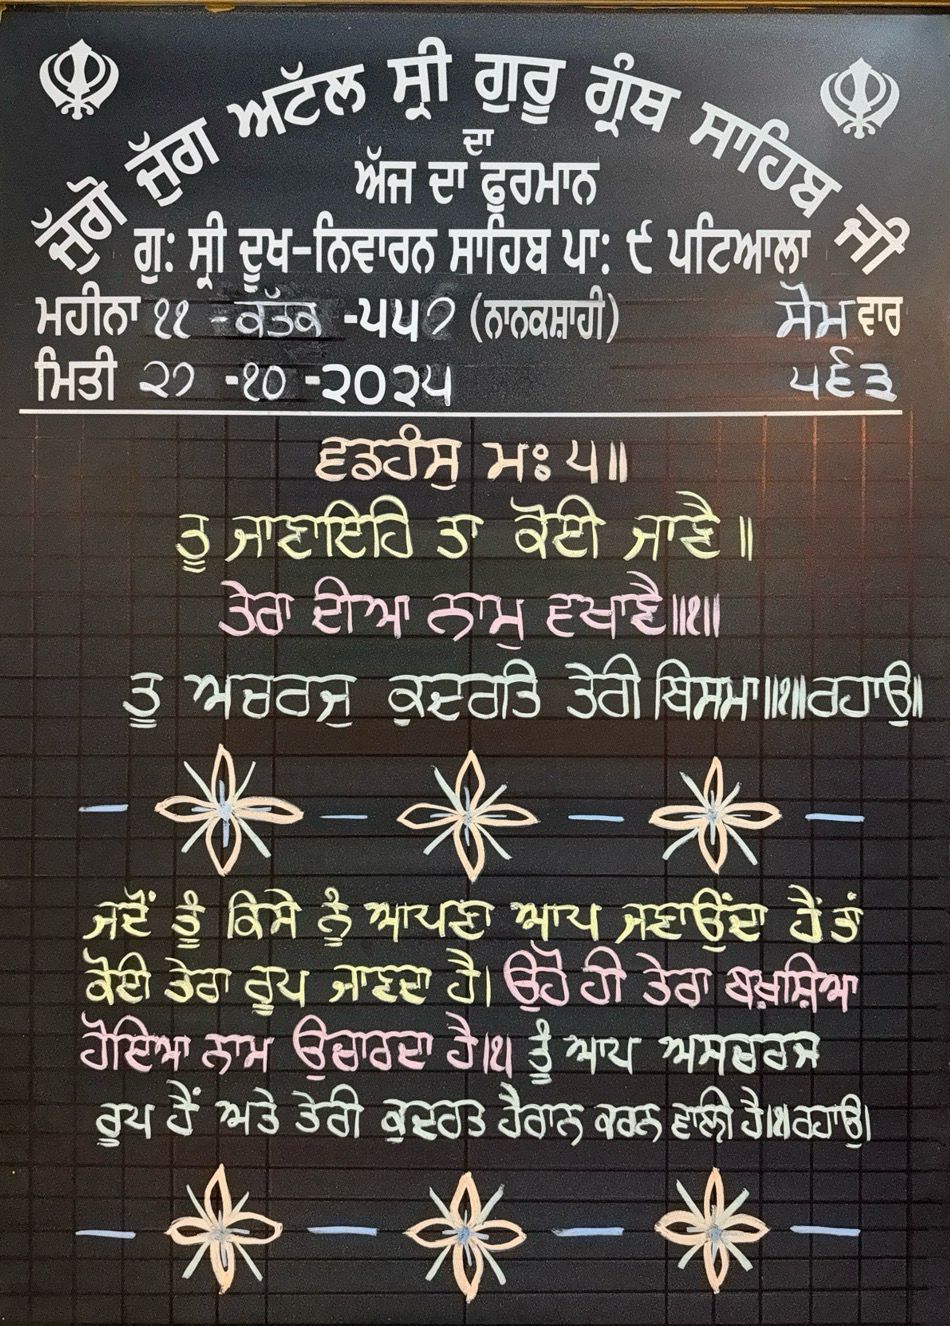 ਜੁੱਗੋ ਜੁੱਗ ਅਟੱਲ ਸ਼੍ਰੀ ਗੁਰੂ ਗ੍ਰੰਥ ਸਾਹਿਬ ਜੀ
ਦਾ
ਅੱਜ ਦਾ ਫੂਰਮਾਨ
ਗੁ: ਸ਼੍ਰੀ ਦੂਖ-ਨਿਵਾਰਨ ਸਾਹਿਬ ਪਾ: ੯ ਪਟਿਆਲਾ
ਮਹੀਨਾ ੧੧ -ਕੱਤਕ -੫੫੭ (ਨਾਨਕਸ਼ਾਹੀ) ਸੋਮ ਵਾਰ
ਮਿਤੀ ੨੭ -੧੦ -੨੦੨੫ ੫੬੩
ਵਡਹੰਸੁ ਮਃ ੫॥
ਤੂ ਜਾਣਾਇਹਿ ਤਾ ਕੋਈ ਜਾਣੈ॥
ਤੇਰਾ ਦੀਆ ਨਾਮੁ ਵਖਾਣੈ॥੧॥
ਤੂ ਅਚਰਜੁ ਕੁਦਰਤਿ ਤੇਰੀ ਬਿਸਮਾ॥੧॥ਰਹਾਉ॥
ਜਦੋਂ ਤੂੰ ਕਿਸੇ ਨੂੰ ਆਪਣਾ ਆਪ ਜਣਾਉਂਦਾ ਹੈਂ ਤਾਂ
ਕੋਈ ਤੇਰਾ ਰੂਪ ਜਾਣਦਾ ਹੈ। ਉਹੋ ਹੀ ਤੇਰਾ ਬਖ਼ਸ਼ਿਆ
ਹੋਇਆ ਨਾਮ ਉਚਾਰਦਾ ਹੈ।੧। ਤੂੰ ਆਪ ਅਸਚਰਜ
ਰੂਪ ਹੈਂ ਅਤੇ ਤੇਰੀ ਕੁਦਰਤ ਹੈਰਾਨ ਕਰਨ ਵਾਲੀ ਹੈ।੧।ਰਹਾਉ।